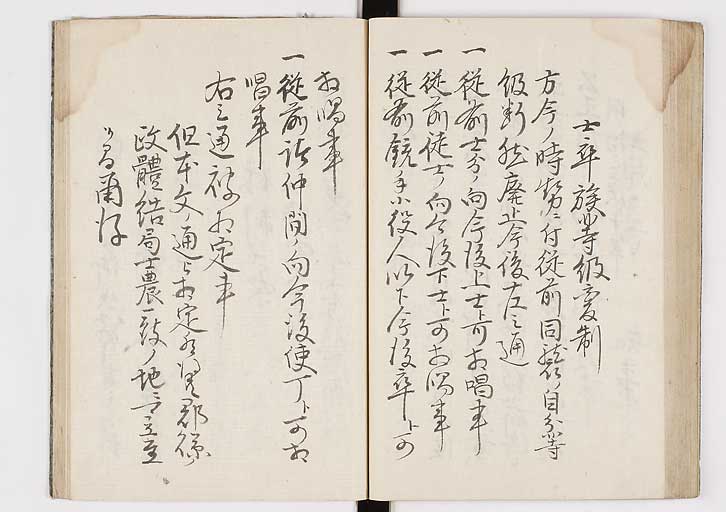 士卒族等級変制
方今ノ時勢ニ付従前同藩ノ自分等
級断然廃止今後左之通
一従前士分ノ向今後上士ト可相唱事
一従前徒士ノ向今後下士ト可相唱事
一従前鏡手小役人以下今後卒ト可
相唱事
一従前諸仲間ノ向今後使丁ト可相
唱事
右之通被相定事
但本文ノ通ニ相定候得郡県
政體結局士農一致ノ地ニ立至
爾後